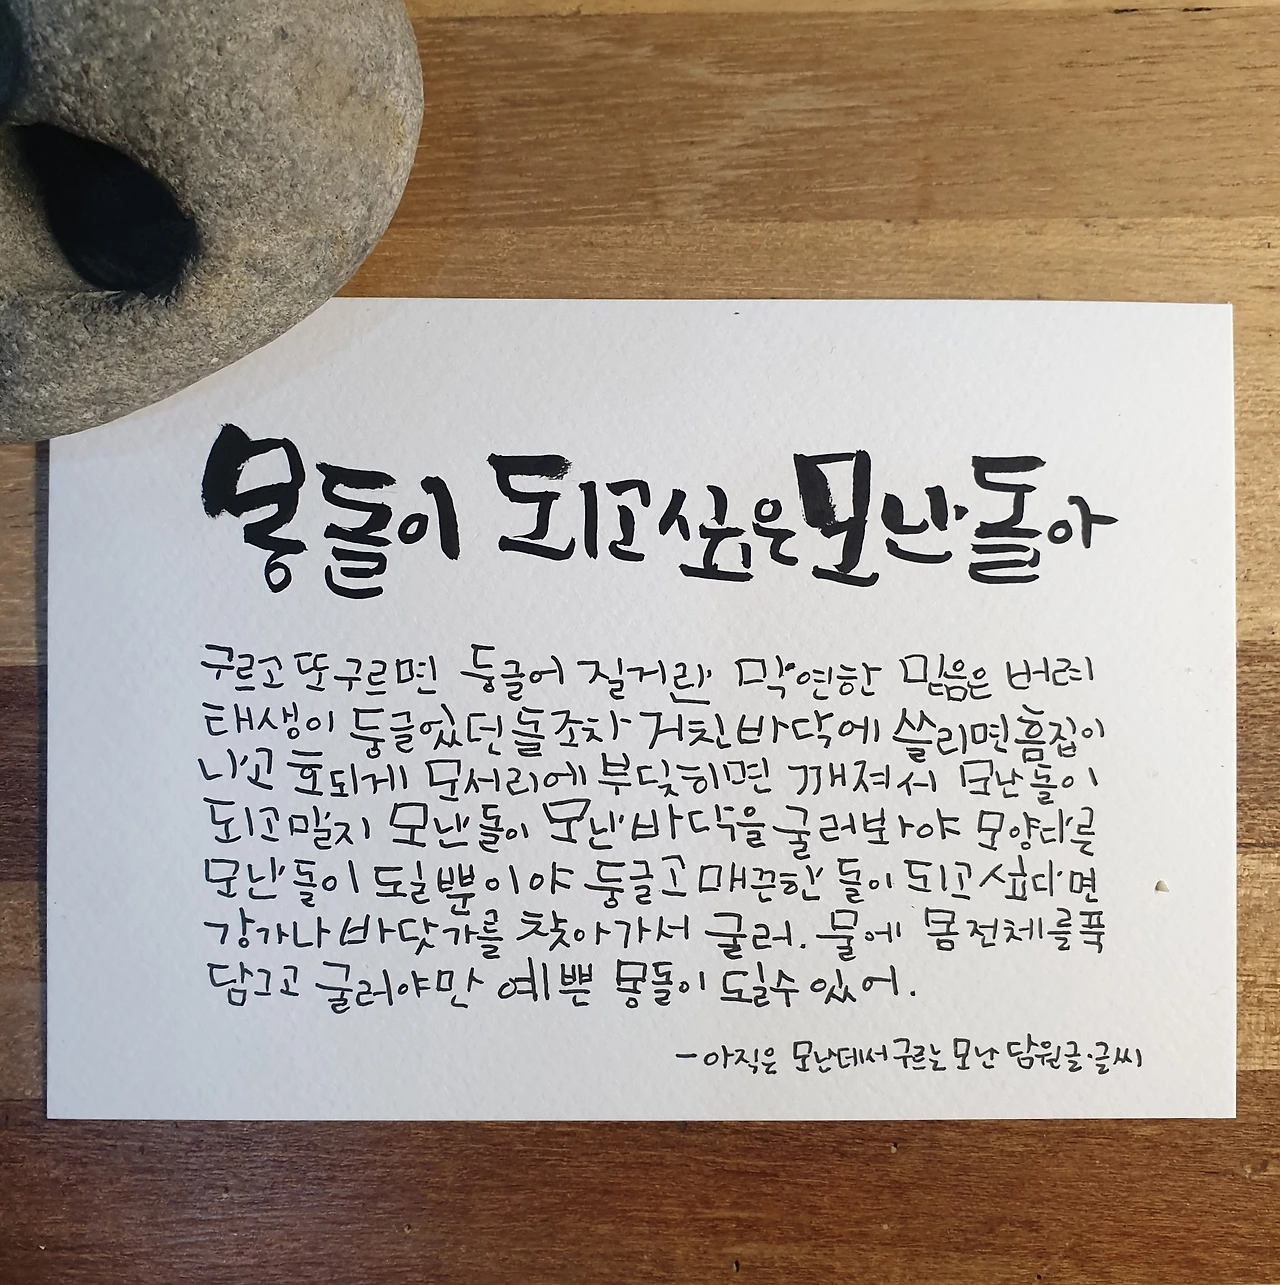 몽돌이 되고싶은 모난돌아
구르고 또 구르면 둥글어 질거란 막연한 믿음은 버려
태생이 둥글었던 돌조차 거친 바닥에 쓸리면 흠집이
나고 호되게 모서리에 부딪히면 깨져서 모난돌이
되고말지 모난 돌이 모난 바닥을 굴러보아야 모양다른
모난돌이 도일뿐이야 둥글고 매끈한 돌이 되고 싶다면
강가나 바닷가를 찾아가서 굴러. 물에 몸 전체를 푹
담그고 굴러야만 예쁜 몽돌이 도일수 있어.
-아직은 모난데서 구르는 모난 담원 글·글씨